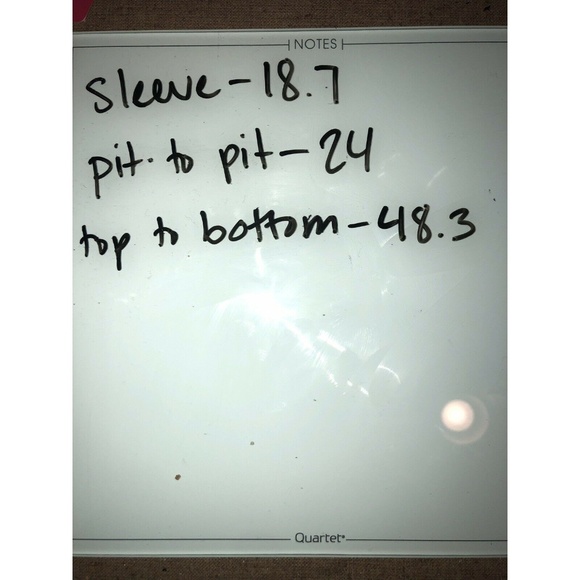 NOTES
sleeve - 18.7
pit to pit - 24
top to bottom - 48.3
Quartet